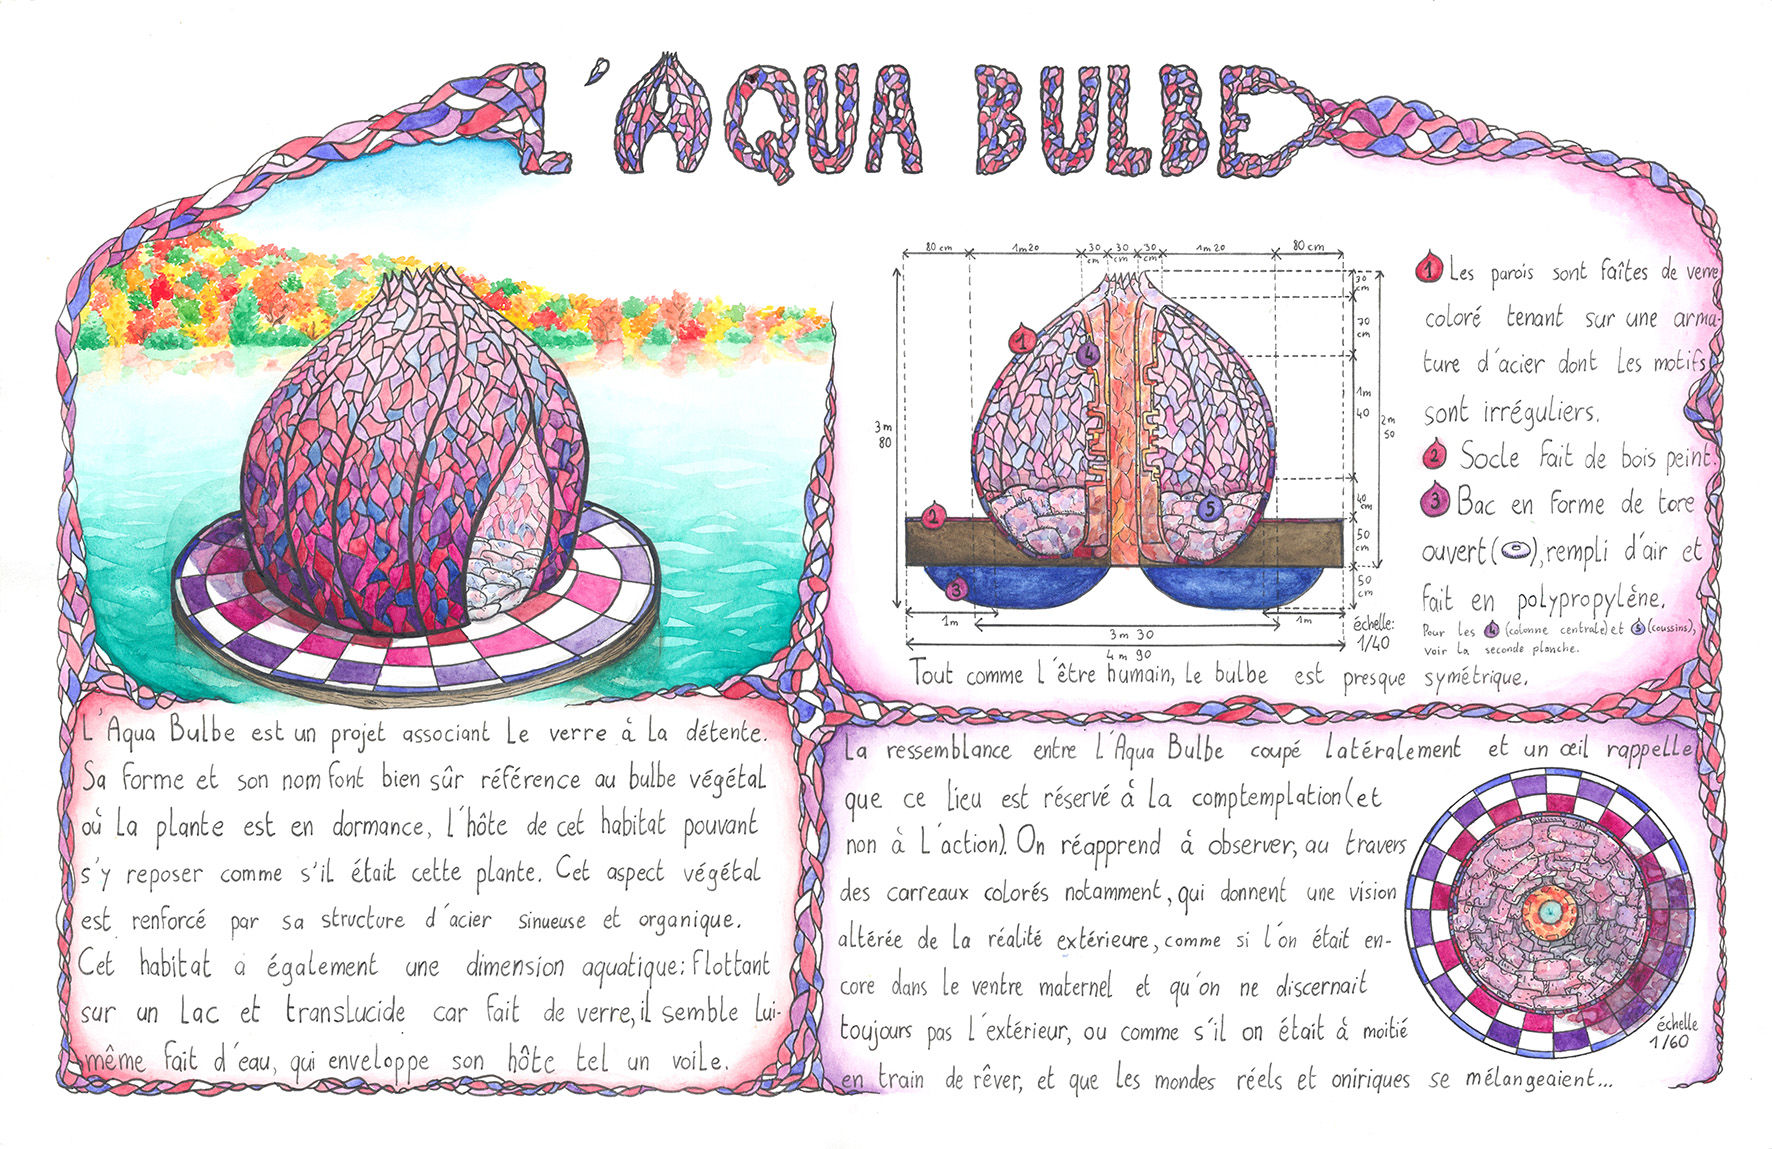 L'AQUA BULBE
80 cm
1m20
30 cm
30 cm
30 cm
1m 20
80 cm
30 cm
70 cm
1m 40
40 cm
50 cm
50 cm
2m 50
3m 80
1
4
5
2
3
1m
1m
3m 30
4m 90
échelle:
1/40
Tout comme l'être humain, le bulbe est presque symétrique.
1 Les parois sont faîtes de verre
coloré tenant sur une arma-
ture d'acier dont les motifs
sont irréguliers.
2 Socle fait de bois peint.
3 Bac en forme de tore
ouvert( ), rempli d'air et
fait en polypropylène.
Pour les 4 (colonne centrale) et 5 (coussins),
voir la seconde planche.
L'Aqua Bulbe est un projet associant le verre à la détente.
Sa forme et son nom font bien sûr référence au bulbe végétal
où la plante est en dormance, l'hôte de cet habitat pouvant
s'y reposer comme s'il était cette plante. Cet aspect végétal
est renforcé par sa structure d'acier sinueuse et organique.
Cet habitat a également une dimension aquatique: flottant
sur un lac et translucide car fait de verre, il semble lui-
même fait d'eau, qui enveloppe son hôte tel un voile.
La ressemblance entre l'Aqua Bulbe coupé latéralement et un œil rappelle
que ce lieu est réservé à la comptemplation (et
non à l'action). On réapprend à observer, au travers
des carreaux colorés notamment, qui donnent une vision
altérée de la réalité extérieure, comme si l'on était en-
core dans le ventre maternel et qu'on ne discernait
toujours pas l'extérieur, ou comme s'il on était à moitié
en train de rêver, et que les mondes réels et oniriques se mélangeaient...
échelle
1/60